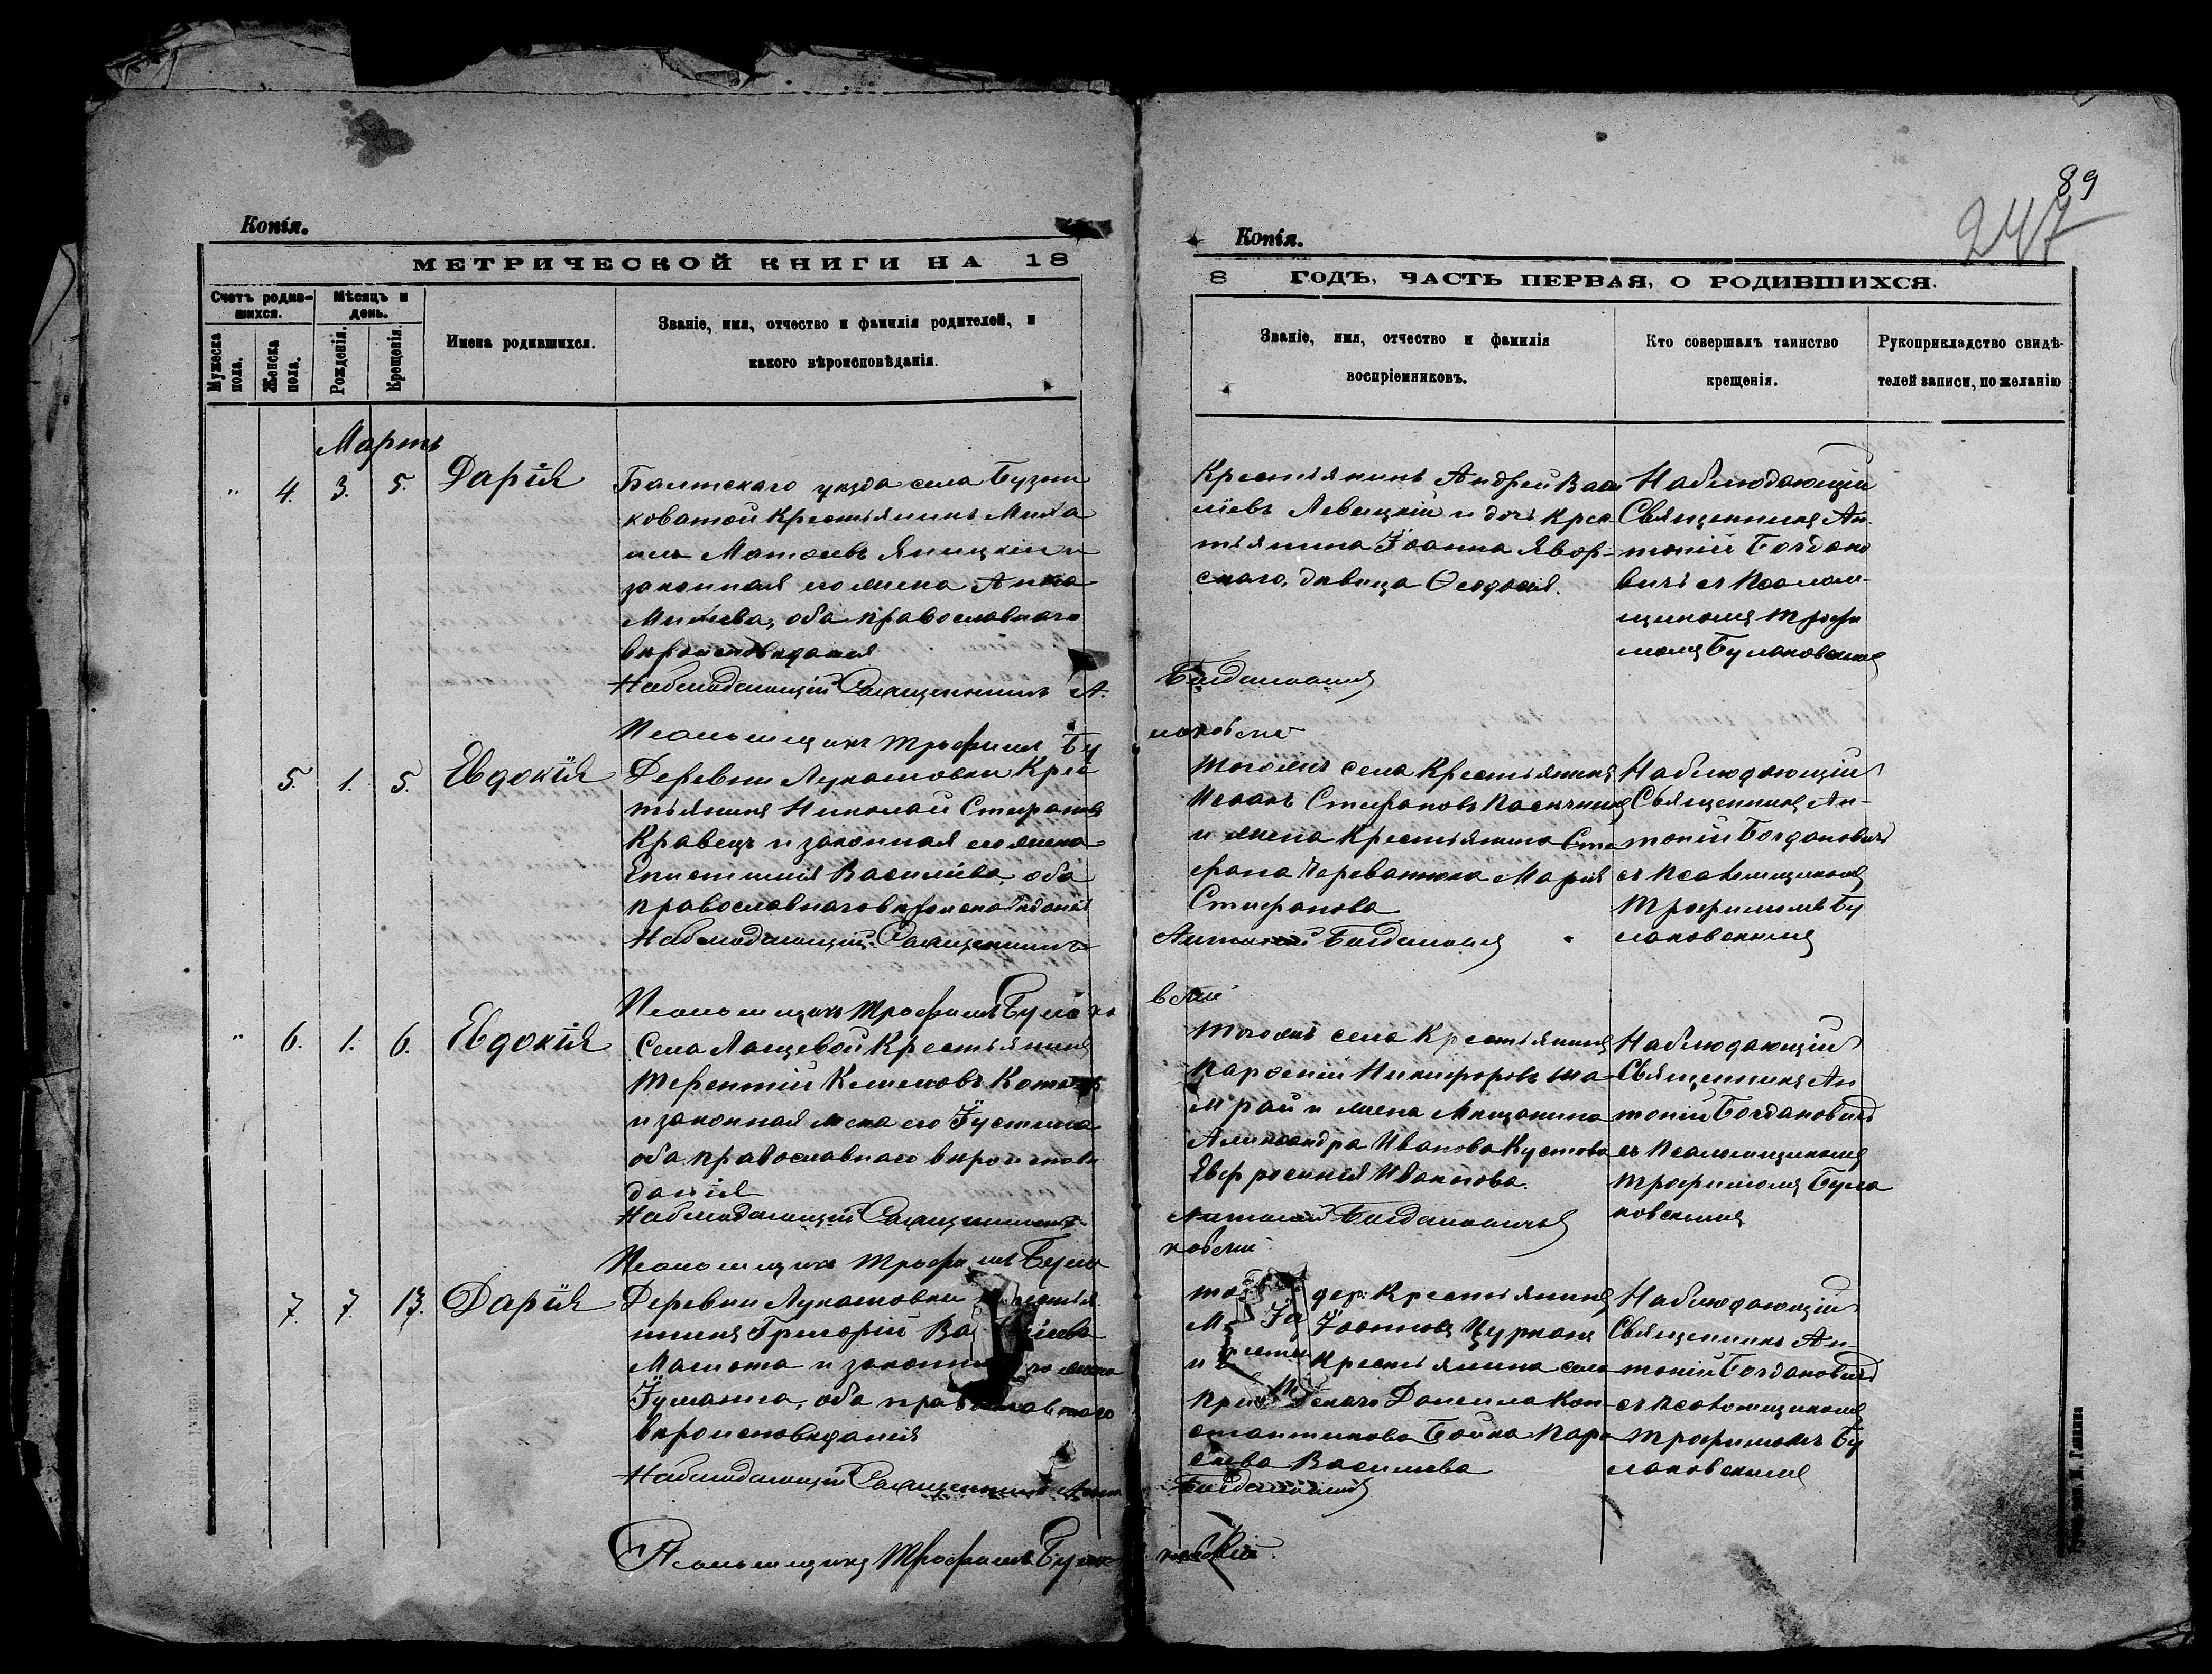 89
247
Копія.
МЕТРИЧЕСКОЙ КНИГИ НА 18
Счетъ родив-
шихся.
Мужеска
пола.
Женска
пола.
Мѣсяцъ и
день.
Рожденія.
Крещенія.
Имена родившихся.
Званіе, имя, отчество и фамилія родителей, и
какого вѣроисповѣданія.
Мартъ
4. 3. 5. Дарія
Балтскаго уѣзда села Бузни
коватой Крестьянинъ Миха
илъ Матѳеевъ Яницкій и
законная его жена Анна
православнаго
вѣроисповѣданія
Наблюдающій Священникъ А.
Псаломщикъ Трофимъ Бу
5. 1. 5. Евдокія
Деревни Лукашовки Крес
тьянинъ Николай Стефановъ
Кравецъ и законная его жена
Епистимія Василіева, оба
православнаго вѣроисповѣданія
Наблюдающій Священникъ
Псаломщикъ Трофимъ Була ко
6. 1. 6. Евдокія
Села Лащевой Крестьянинъ
Терентій
и законная жена его Іустина
оба православнаго вѣроисповѣ
данія
Наблюдающій Священникъ
Псаломщикъ Трофимъ Була
7. 7. 13. Дарія
Деревни Лукашовки
нинъ Григорій
и законн его жена
Іуліанна, оба православнаго
вѣроисповѣданія
Наблюдающій Священникъ Анто
Псаломщикъ Трофимъ Була
Копія.
8 ГОДЪ, ЧАСТЬ ПЕРВАЯ, О РОДИВШИХСЯ.
Званіе, имя, отчество и фамилія
воспріемниковъ.
Кто совершалъ таинство
крещенія.
Рукоприкладство свидѣ-
телей записи, по желанію
Крестьянинъ Андрей Васи
ліевъ Левицкій и дочь крес
тьянина Іоанна Явор-
скаго, дѣвица Ѳеодосія.
Наблюдающій
Священникъ Ан-
тоній Богдано
вичъ съ Псалом-
щикомъ Трофи
момъ Булаковскимъ
Богдановичъ
лаковскій
Тогожъ села Крестьянинъ
Исаакъ Стефановъ Пасѣчникъ
и жена крестьянина Сте
фана Череватюка Марія
Стефанова
Наблюдающій
Священникъ Ан-
тоній Богдановичъ
съ Псаломщикомъ
Трофимомъ Бу
лаковскимъ
Антоній Богдановичъ
вскій
Тогожъ села Крестьянинъ
Никифоровъ Ша-
мрай и жена Мѣщанина
Александра Иванова Кустова
Евфросинія Иванова.
Наблюдающій
Священникъ Ан
тоній Богдановичъ
съ Псаломщикомъ
Трофимомъ Була
ковскимъ
Антоній Богдановичъ
ковскій
дер. Крестьянинъ
Іоанновъ Цурканъ
Крестьянина села
Даніила Кон-
стантинова Бойка Пара
скева Василіева
Наблюдающій
Священникъ Ан-
тоній Богдановичъ
съ Псаломщикомъ
Трофимомъ Бу
лаковскимъ
Богдановичъ
ковскій